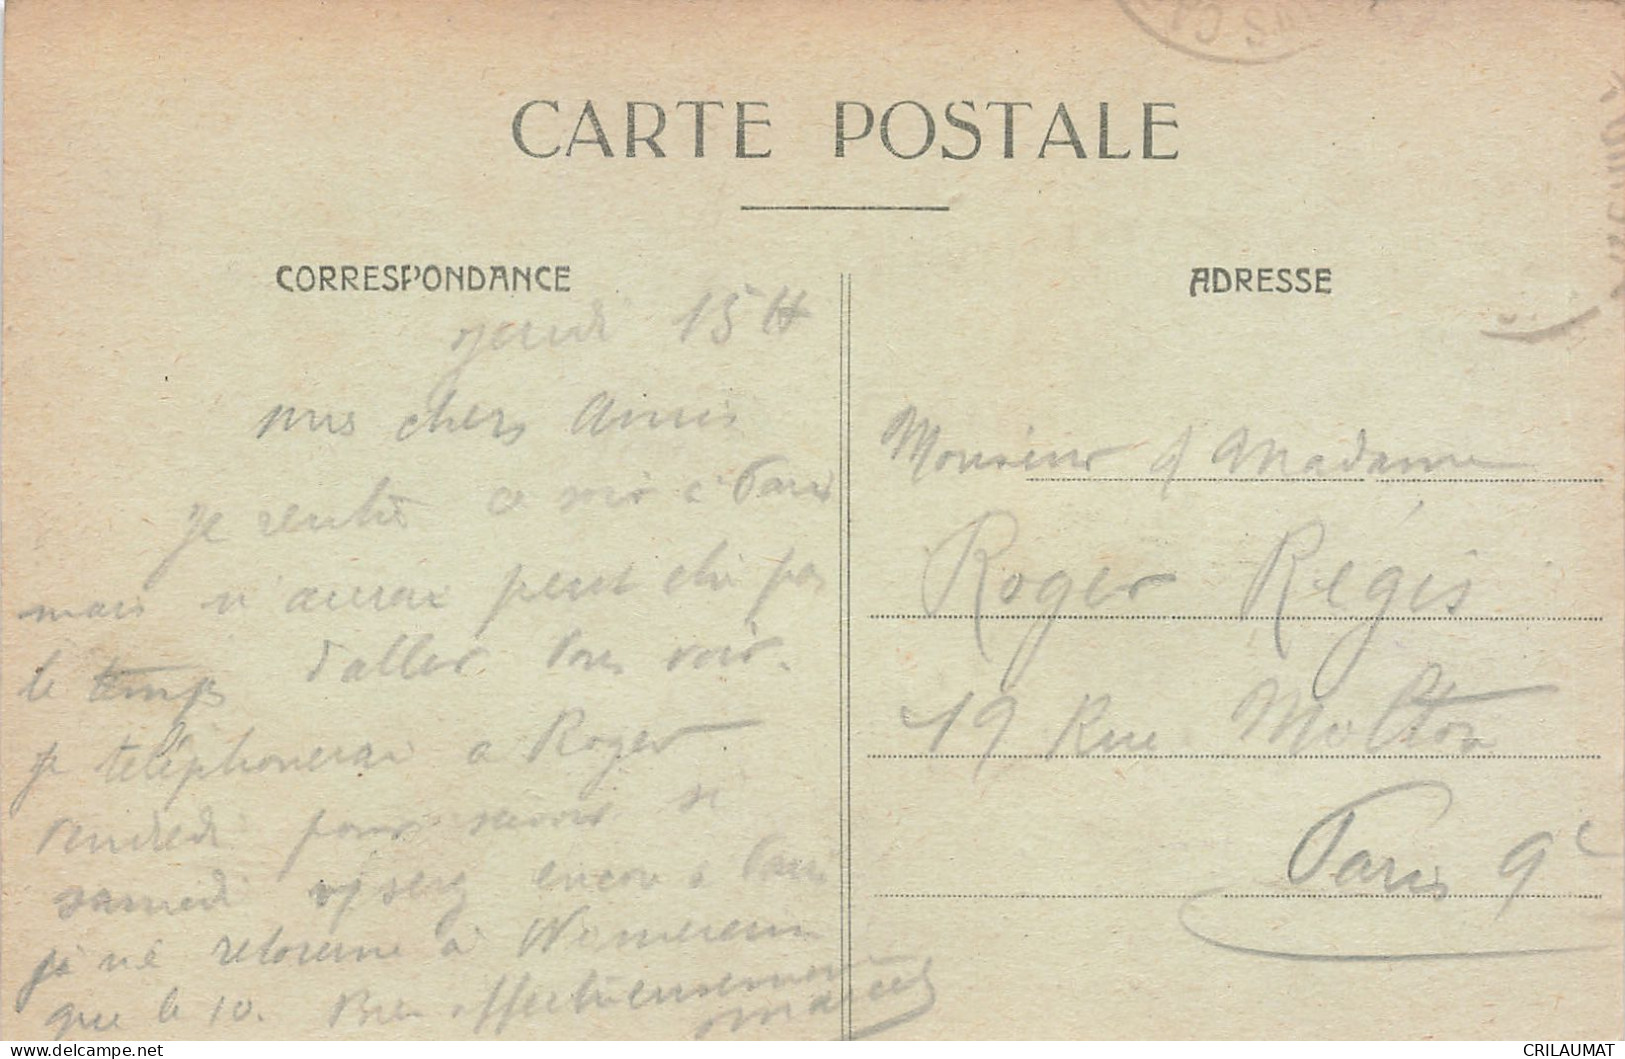 CARTE POSTALE
CORRESPONDANCE
jeudi 15 H
mes chers Amis
je rentre ce soir à Paris
mais n'aurai peut être pas
le temps d'aller vous voir.
je téléphonerai a Roger
vendredi pour savoir si
samedi vs serez encore a Paris
je ne retourne à Wimereux
que le 10. Bien affectueusement
Marcel
ADRESSE
Monsieur & Madame
Roger Régis
19 Rue Molton
Paris 9e
CRILAUMAT